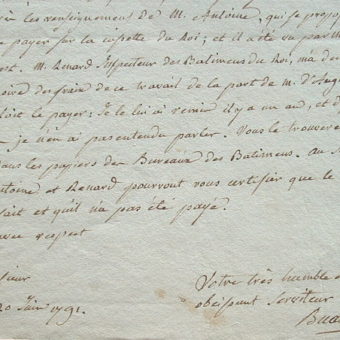 les renseignemens de M. Antoine, qui se propo
payer sur la cassette du Roi; et il a été vu par M
M. Renard Inspecteur des Batimens du Roi, m'a de
oire des frais de ce travail de la part de M. d'Ang
loit le payer: Je le lui ai remis il y a un an, et d
je n'en ai pas entendu parler. Vous le trouvere
dans les papiers des Bureaux des Batimens. au
et Renard pourront vous certifier que le
fait et qu'il n'a pas été payé.
avec respect
sieur
Votre très humble
obeissant Serviteur
20 Juin 1791.